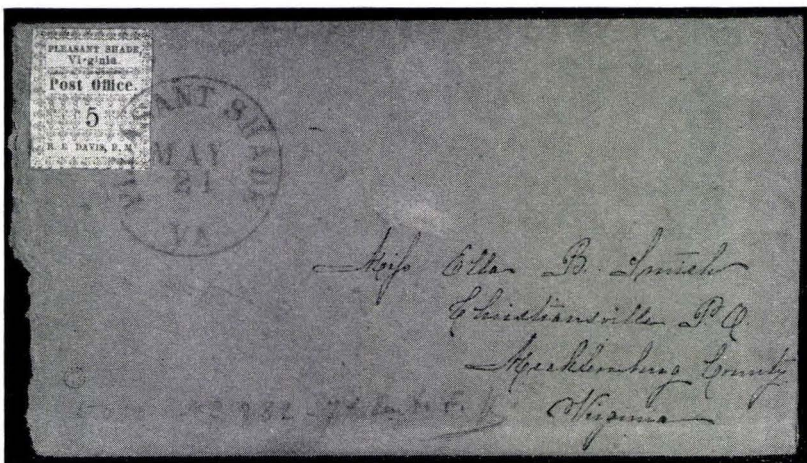 PLEASANT SHADE,
Virginia
Post Office.
5
R. E. DAVIS, P. M.
PLEASANT SHADE
MAY
21
VA
Miss Ella B. Smith
Christiansville P.O.
Mecklenburg County
Virginia